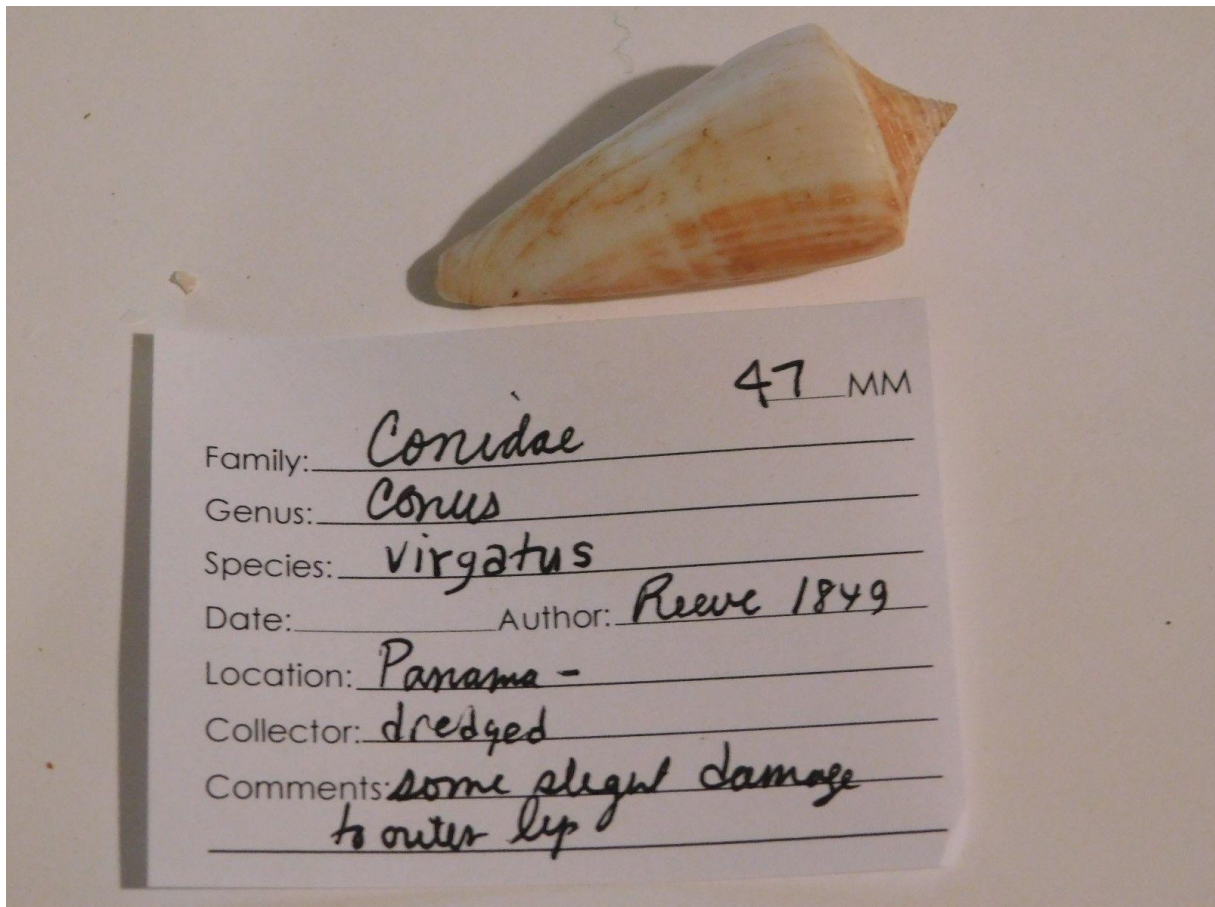 47 MM
Family: Conidae
Genus: Conus
Species: virgatus
Date: Author: Reeve 1849
Location: Panama -
Collector: dredged
Comments: some slight damage
to outer lip